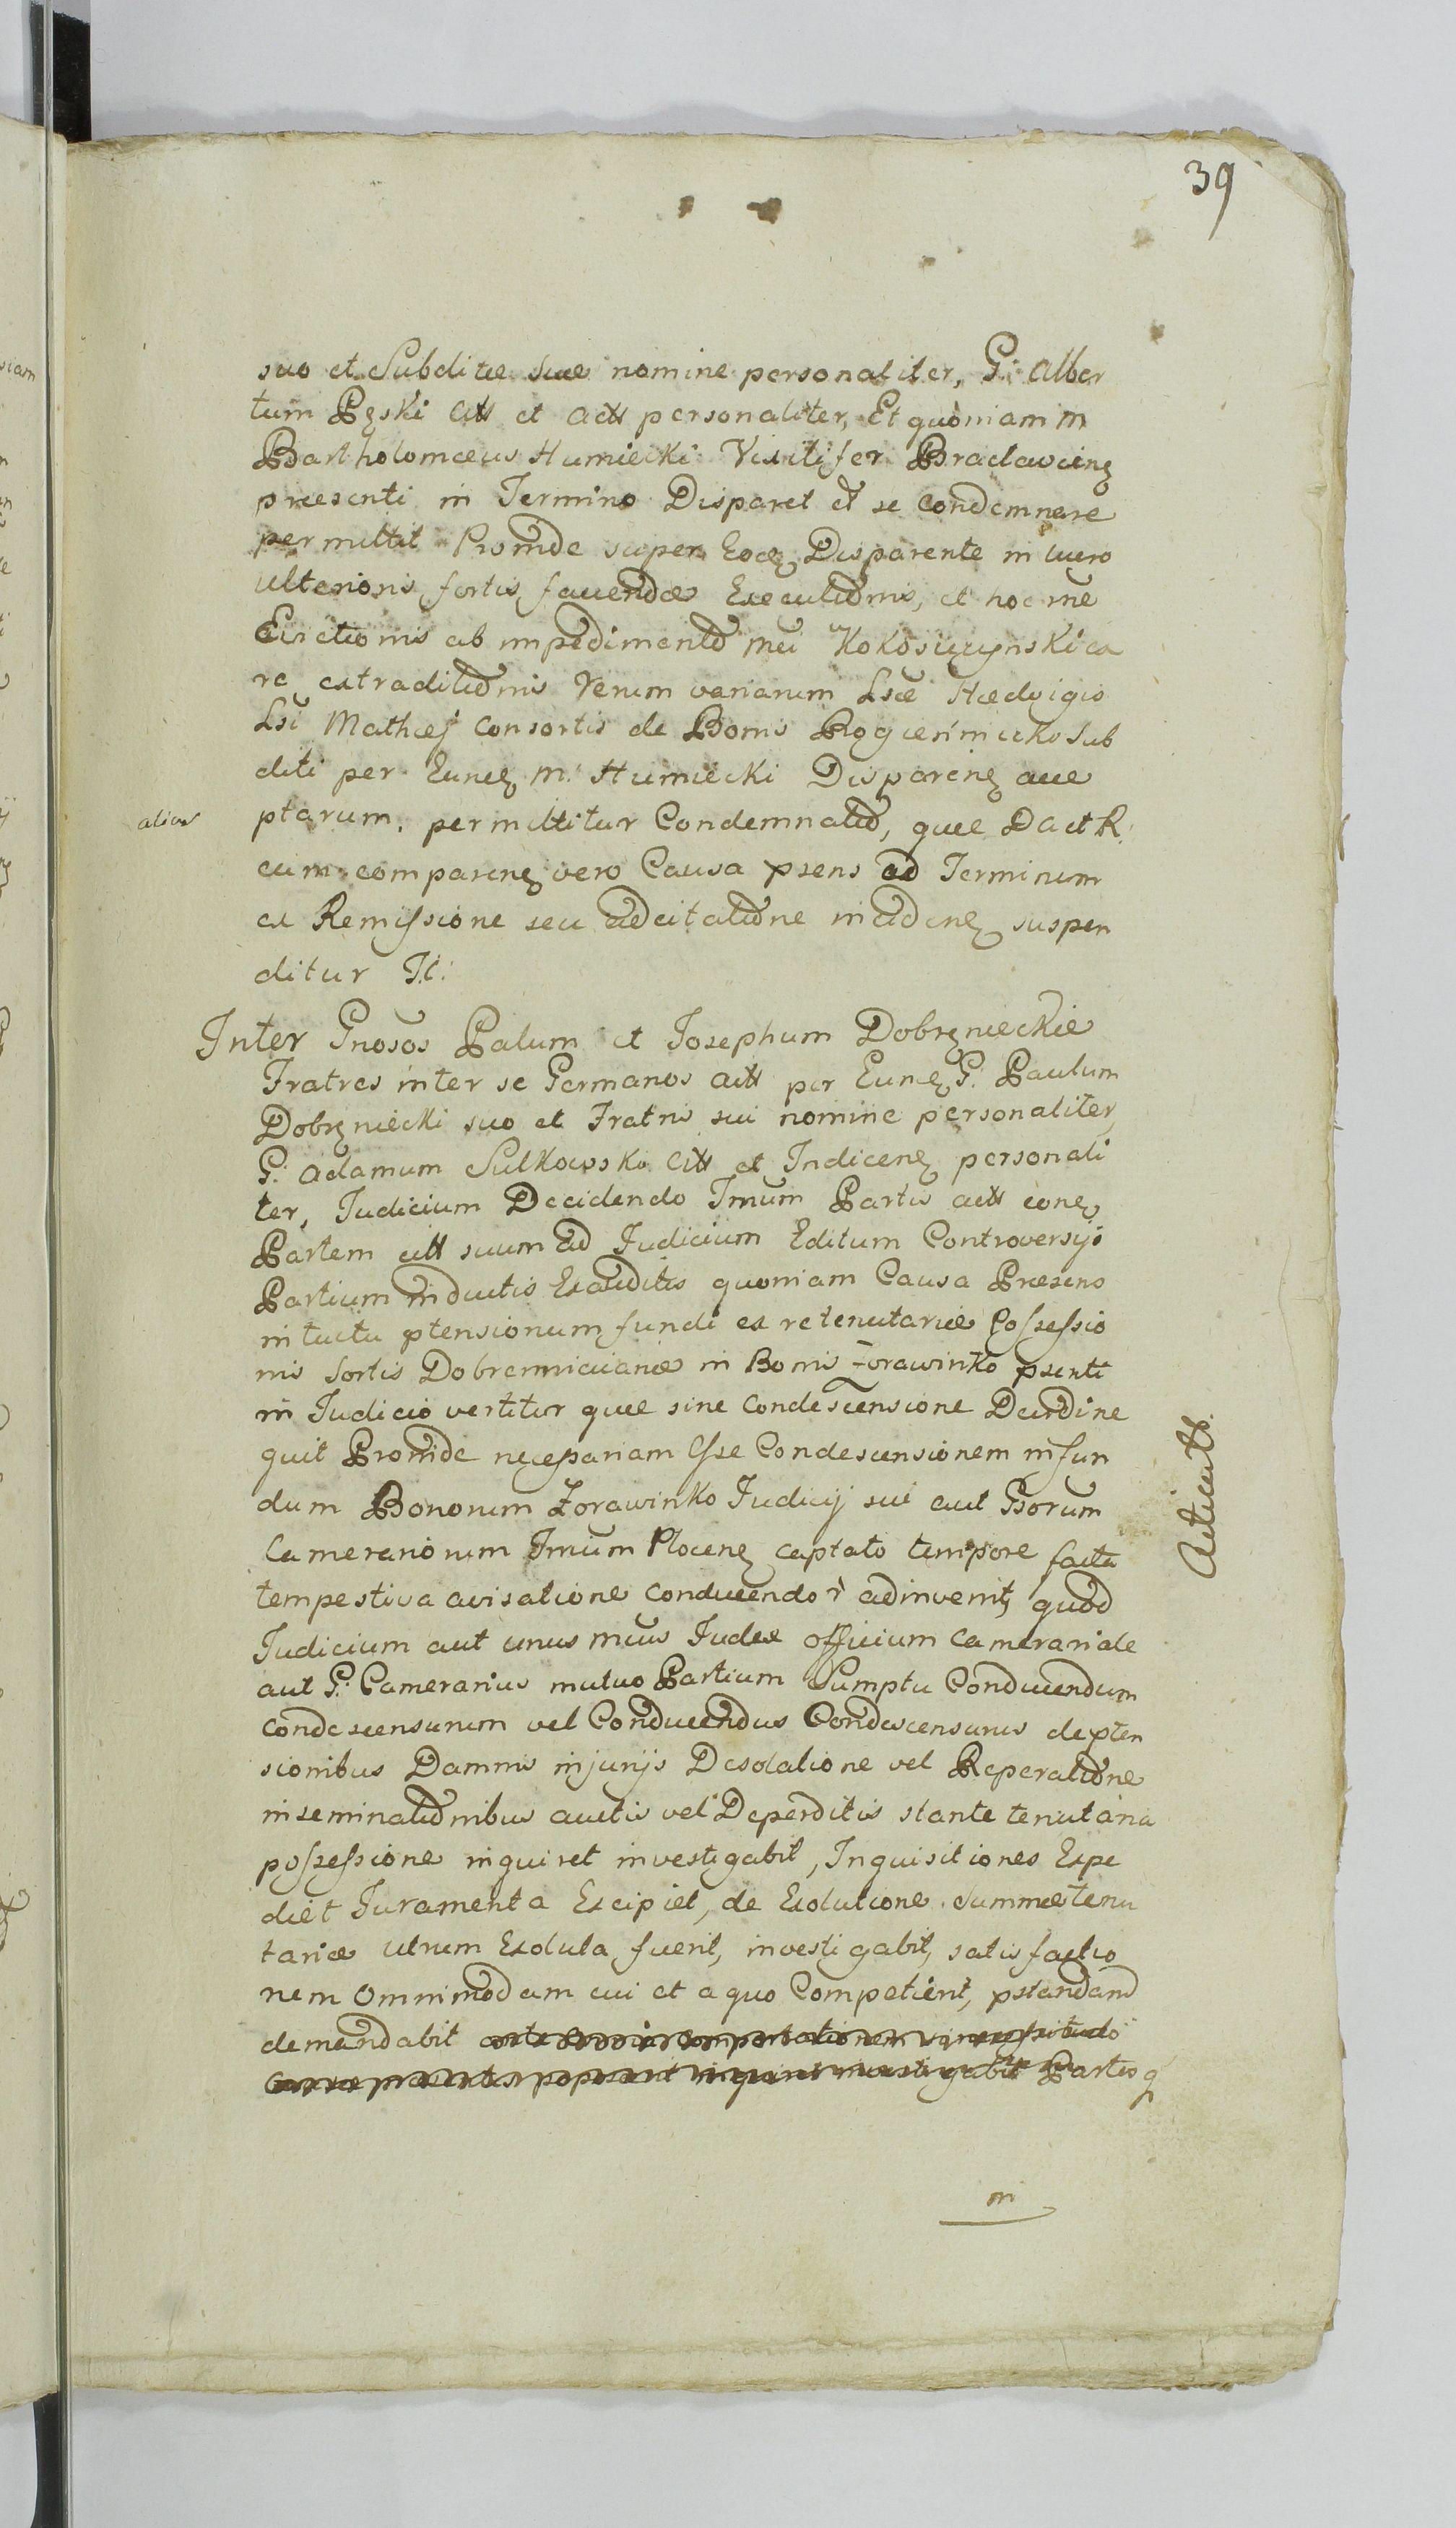 39
suo et Subditæ suæ nomine personaliter, G: Alber
tum Pęski Citt et Actt personaliter, Et quòniam M
Bartholomæus Humiecki Vexilifer Braclaviens
præsenti in Termino Disparet et se Condemnare
permittit Proinde super Eoq Disparente in lucro
Ulterioris fortis favendæ Executionis, et hoc rne
Evictionis ab impedimento Mci Kokosiczynski ca
re extraditionis rerum variarum Lsæ Hedvigis
Lsi Mathæj Consortis de Bonis Rogieńmicko Sub
diti per Eunq M. Humiecki Disparenq acce
alias
ptarum, permittitur Condemnatio, quæ D act R:
cum comparenq vero Causa præns ad Terminum
ex Remissione seu adcitatione incidenq suspen
ditur It:
Inter Gnosos Palum et Josephum Dobrznieckie
Fratres inter se Germanos Actt per Eunq G: Paulum
Dobrzniecki suo et Fratris sui nomine personaliter,
G: Adamum Sulkowski Citt et Indicenq personali
ter, Judicium Decidendo Imum Partis Actt conq
Partem citt suum ad Judicium Editum Controversijs
Partium inductis Exauditis quoniam Causa Præsens
intuitu ptensionum fundi ex retenutariæ Possessio
nis Sortis Dobrzenniciianæ in Bonis Zorawinko psenti
in Judicio vertitur quæ sine Condescensione Decidi ne
quit Proinde necessariam Esse Condescensionem in fun
dum Bonorum Zorawinko Judicij sui aut Gsorum
Camerariorum Imum Plocenq captato tempore facta
tempestiva avisatione conducendor adinvenit, quod
Judicium aut unus Mcus Judex officium Camerariale
aut G: Camerarius mutuo Partium Sumptu Conducendum
condescensurum vel Conducendus Condescensurus de pten
sionibus Damnis injurijs Desolatione vel Reperatione
inseminationibus auctis vel Deperditis stante tenutaria
possessione inquiret investigabit, Inquisitiones Expe
diet Juramenta Excipiet, de Exolutione summæ tenu
tariæ utrum Exoluta fuerit, investigabit, satisfactio
nem Omnimodam cui et a quo Competient, pstandam
demandabit
Partes q
in
Acticatt.